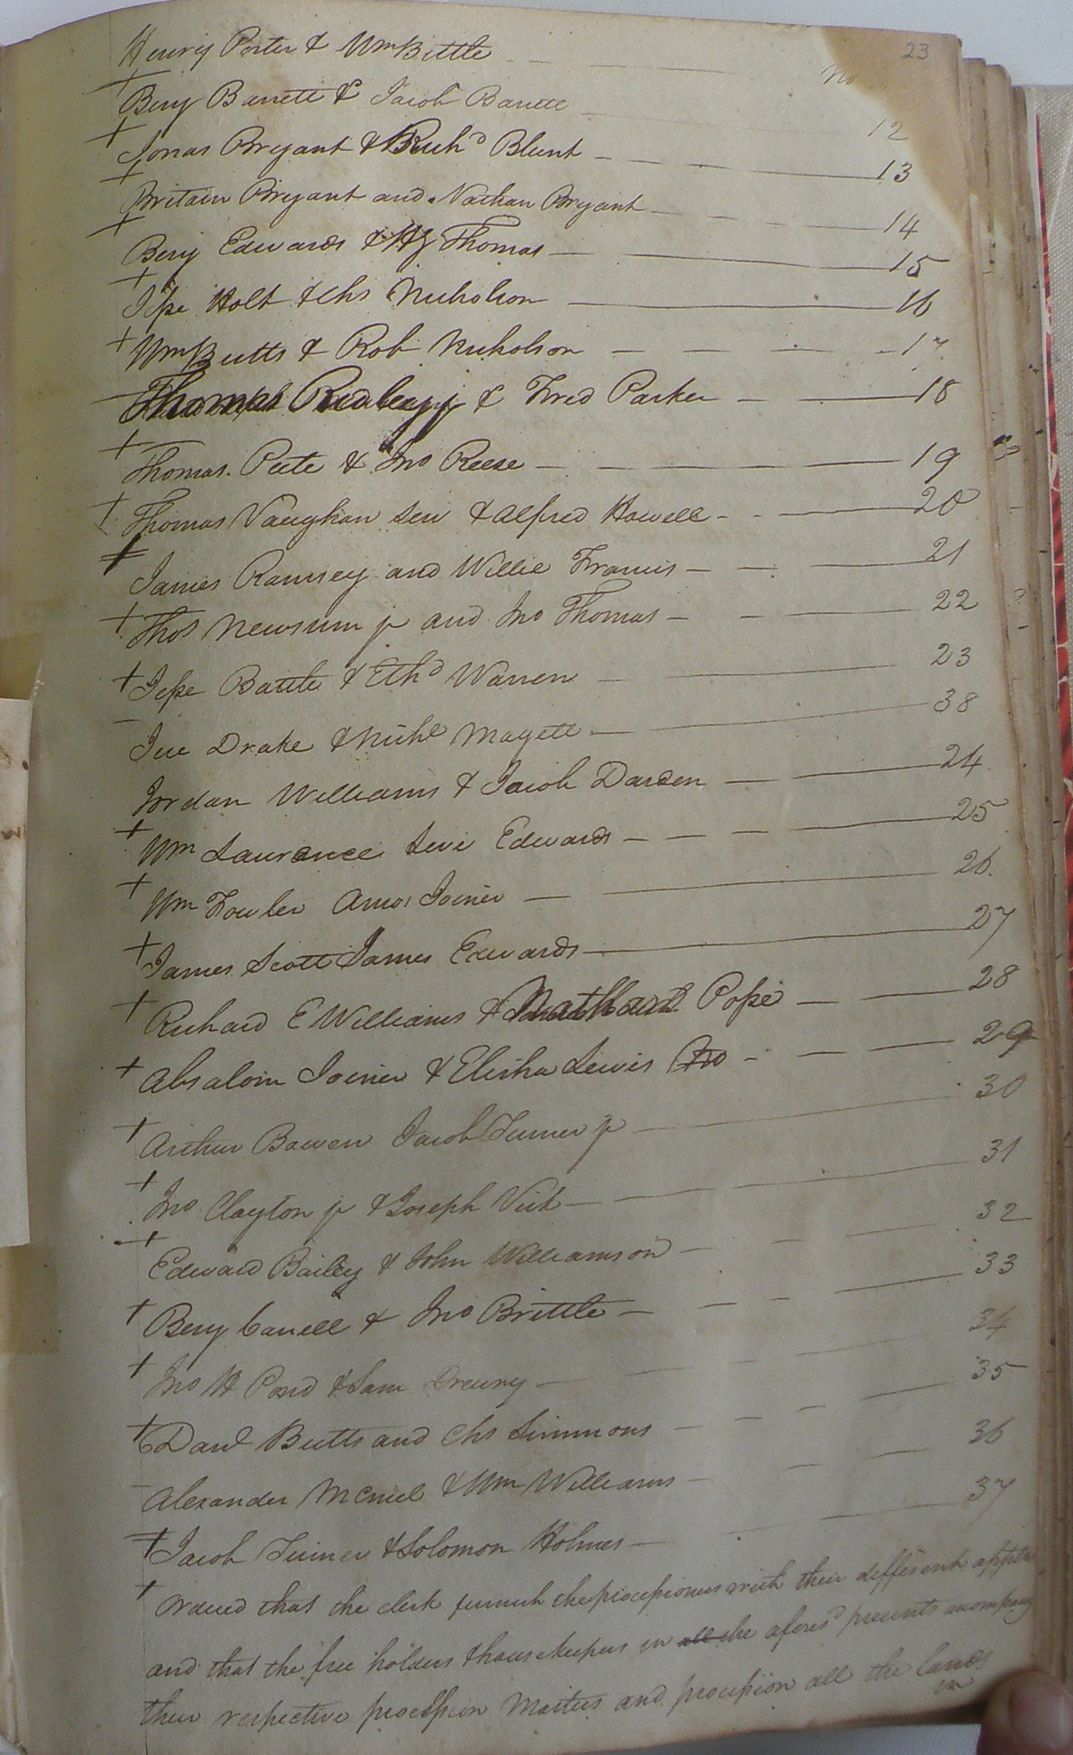 23
Henry Porter & Wm Bittle
No
Benj Barrett & Jacob Barrett 12
Jonas Bryant & Richd Blunt 13
Britain Bryant and Nathan Bryant 14
Benj Edwards & Hy Thomas 15
Jesse Holt & Chs Nicholson 16
Wm Butts & Rob Nicholson 17
Thomas Ridley jr & Fred Parker 18
Thomas Pete & Jno Reese 19
Thomas Vaughan Sen & Alfred Howell 20
James Ramsey and Willie Francis 21
Thos Newsum jr and Jno Thomas 22
Jesse Battle & Ethd Warren 23
Drake & Nichs Magett 38
Jordan Williams & Jacob Darden 24
Wm Laurance Levi Edwards 25
Wm Fowler Amos Joiner 26
James Scott James Edwards 27
Richard E Williams & Nathan Pope 28
Absalom Joiner & Elisha Lewis 29
Arthur Bowen Jacob Turner jr 30
Jno Clayton jr & Joseph Vick 31
Edward Bailey & John Williamson 32
Benj Carrell & Jno Brittle 33
Jno H Pond & Sam Drewry 34
Danl Butts and Chs Simmons 35
Alexander McNiel & Wm Williams 36
Jacob Turner & Solomon Holmes 37
Ordered that the clerk furnish the processioners with their different
and that the free holders & house keepers in all the aforesd precincts accompany
their respective procession Masters and procession all the lands
in